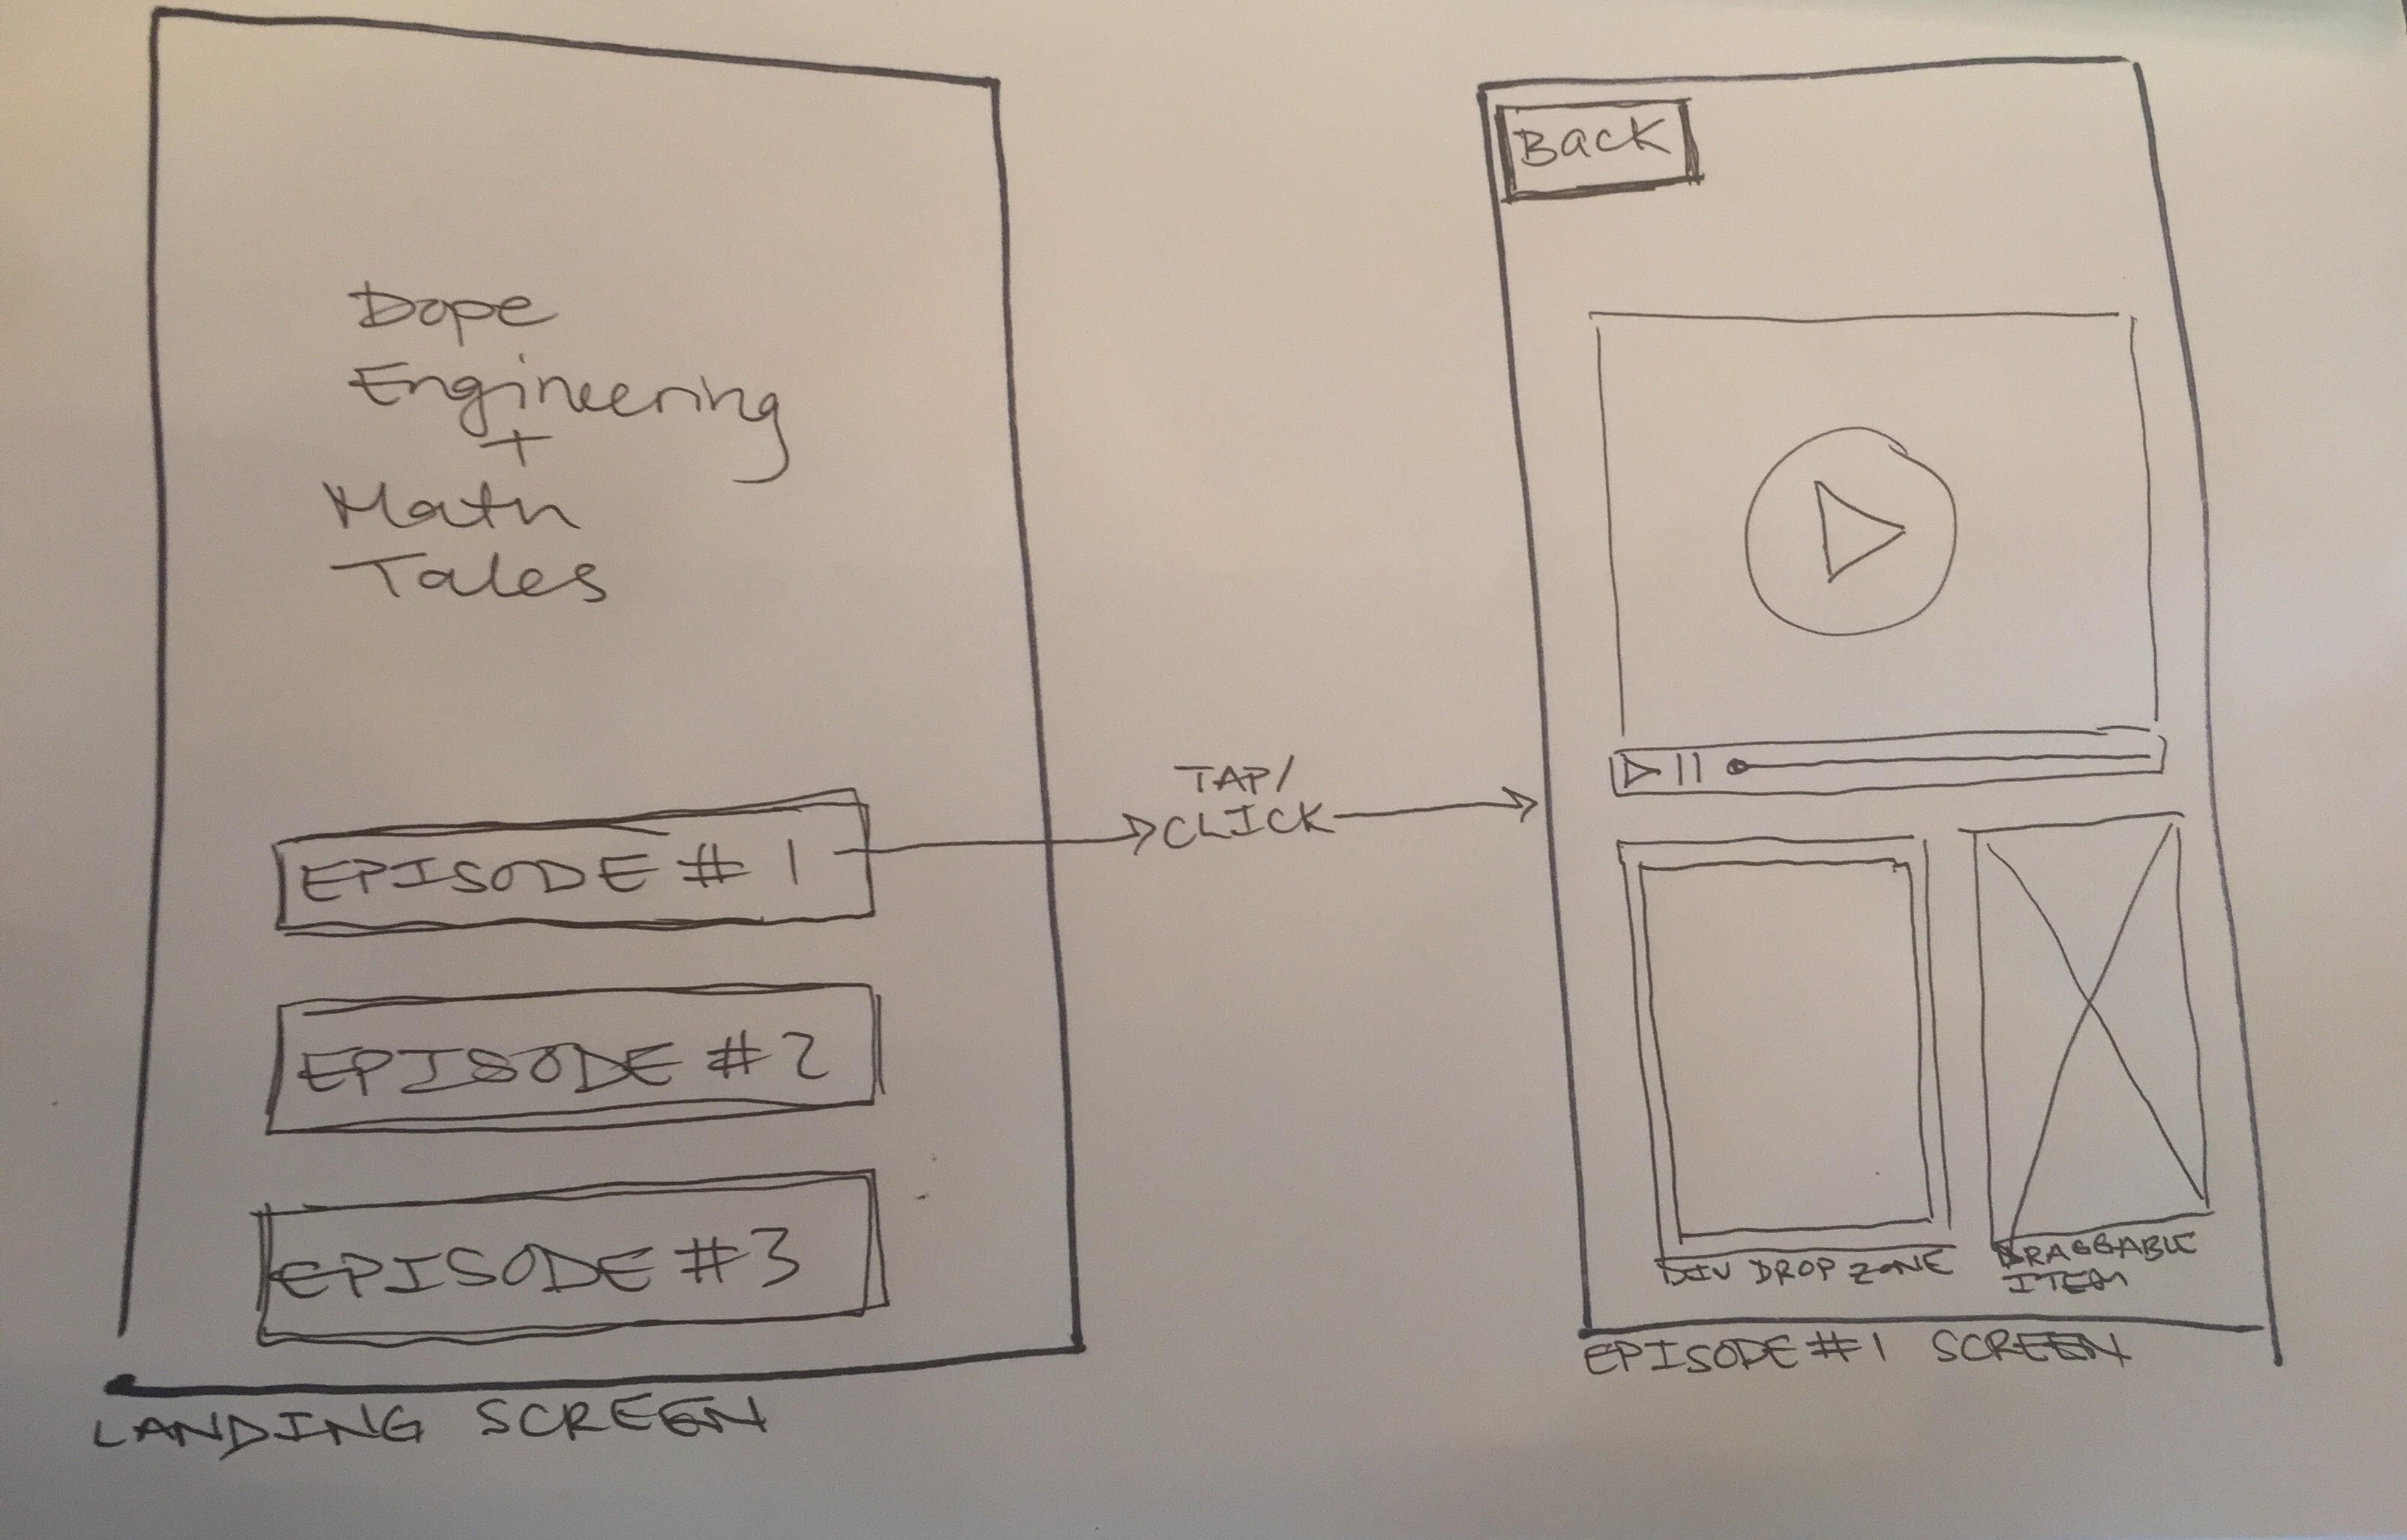 Dope
Engineering
+
Math
Tales
EPISODE # 1
EPISODE #2
EPISODE #3
LANDING SCREEN
TAP/
CLICK
BACK
DIV DROP ZONE
DRAGGABLE
ITEM
EPISODE #1 SCREEN